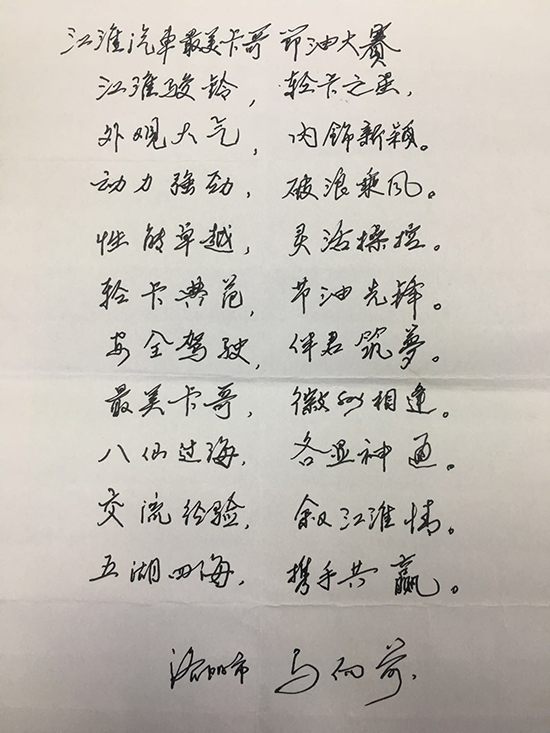 江淮汽車最美卡哥 节油大賽
江淮骏铃，轻卡之星，
外观大气，内饰新颖。
动力强劲，破浪乘风。
性能卓越，灵活操控。
轻卡典范，节油先锋。
安全驾驶，伴君筑夢。
最美卡哥，徽州相逢。
八仙过海，各显神通。
交流经验，叙江淮情。
五湖四海，携手共赢。
洛阳市 马向前.